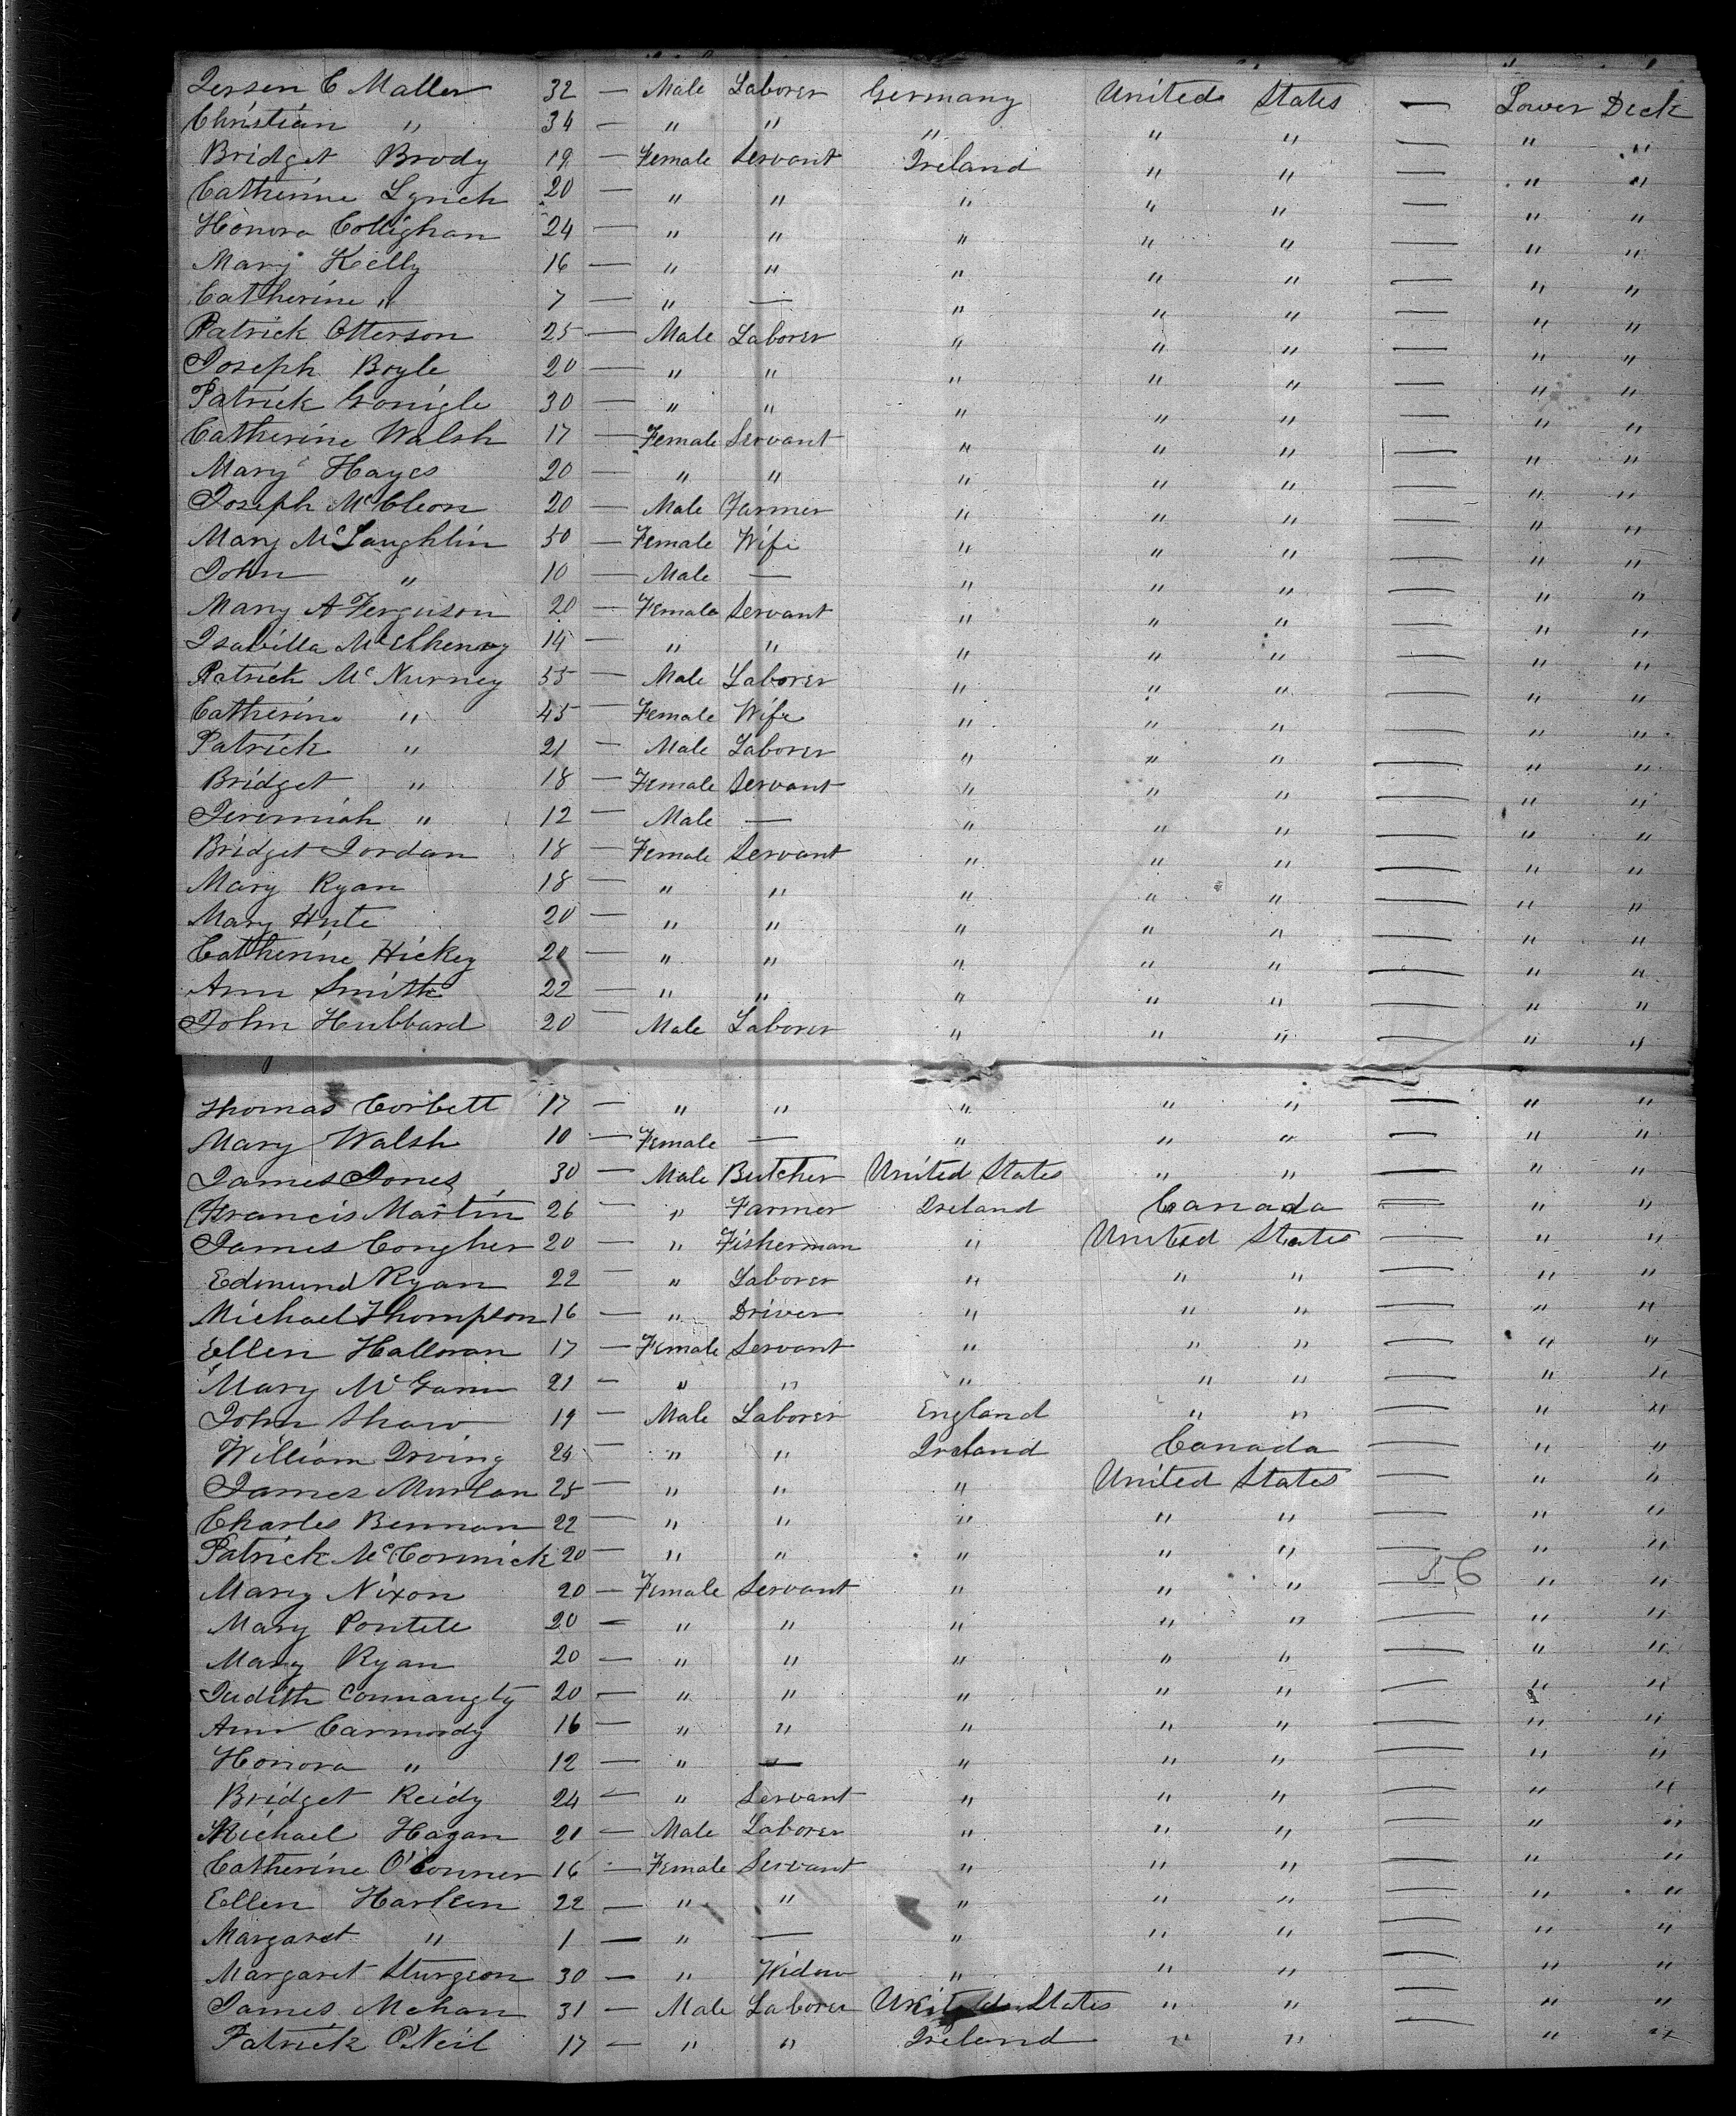 Jersen C Maller 32 — Male Laborer Germany United States — Lower Deck
Christian " 34 — " " " " " — " "
Bridget Brody 19 — Female Servant Ireland " " — " "
Catherine Lynch 20 — " " " " " — " "
Honora Collighan 24 — " " " " " — " "
Mary Kelly 16 — " " " " " — " "
Catherine " 7 — " — " " " — " "
Patrick Otterson 25 — Male Laborer " " " — " "
Joseph Boyle 20 — " " " " " — " "
Patrick Gonigle 30 — " " " " " — " "
Catherine Walsh 17 — Female Servant " " " — " "
Mary Hayes 20 — " " " " " — " "
Joseph McCleon 20 — Male Farmer " " " — " "
Mary McLaughlin 50 — Female Wife " " " — " "
John " 10 — Male — " " " — " "
Mary A Ferguson 20 — Female Servant " " " — " "
Isabella McElhenny 14 — " " " " " — " "
Patrick McNurney 55 — Male Laborer " " " — " "
Catherine " 45 — Female Wife " " " — " "
Patrick " 21 — Male Laborer " " " — " "
Bridget " 18 — Female Servant " " " — " "
Jeremiah " 12 — Male — " " " — " "
Bridget Jordan 18 — Female Servant " " " — " "
Mary Ryan 18 — " " " " " — " "
Mary 20 — " " " " " — " "
Catherine Hickey 20 — " " " " " — " "
Ann Smith 22 — " " " " " — " "
John Hubbard 20 — Male Laborer " " " — " "
Thomas Corbett 17 — " " " " " — " "
Mary Walsh 10 — Female — " " " — " "
James Jones 30 — Male Butcher United States " " — " "
Francis Martin 26 — " Farmer Ireland Canada — " "
James Congher 20 — " Fisherman " United States — " "
Edmund Ryan 22 — " Laborer " " " — " "
Michael Thompson 16 — " Driver " " " — " "
Ellen Halloran 17 — Female Servant " " " — " "
Mary McGann 21 — " " " " " — " "
John Shaw 19 — Male Laborer England " " — " "
William Irving 24 — " " Ireland Canada — " "
James Murlan 25 — " " " United States — " "
Charles Bennan 22 — " " " " " — " "
Patrick McCormick 20 — " " " " " — " "
Mary Nixon 20 — Female Servant " " " — 56 " "
Mary Pontele 20 — " " " " " — " "
Mary Ryan 20 — " " " " " — " "
Judith Connaugty 20 — " " " " " — " "
Ann Carmody 16 — " " " " " — " "
Honora " 12 — " — " " " — " "
Bridget Reidy 24 — " Servant " " " — " "
Michael Hagan 21 — Male Laborer " " " — " "
Catherine O'Conner 16 — Female Servant " " " — " "
Ellen Harlem 22 — " " " " " — " "
Margaret " 1 — " — " " " — " "
Margaret Sturgeon 30 — " Widow " " " — " "
James Mehan 31 — Male Laborer United States " " — " "
Patrick O'Neil 17 — " " Ireland " " — " "